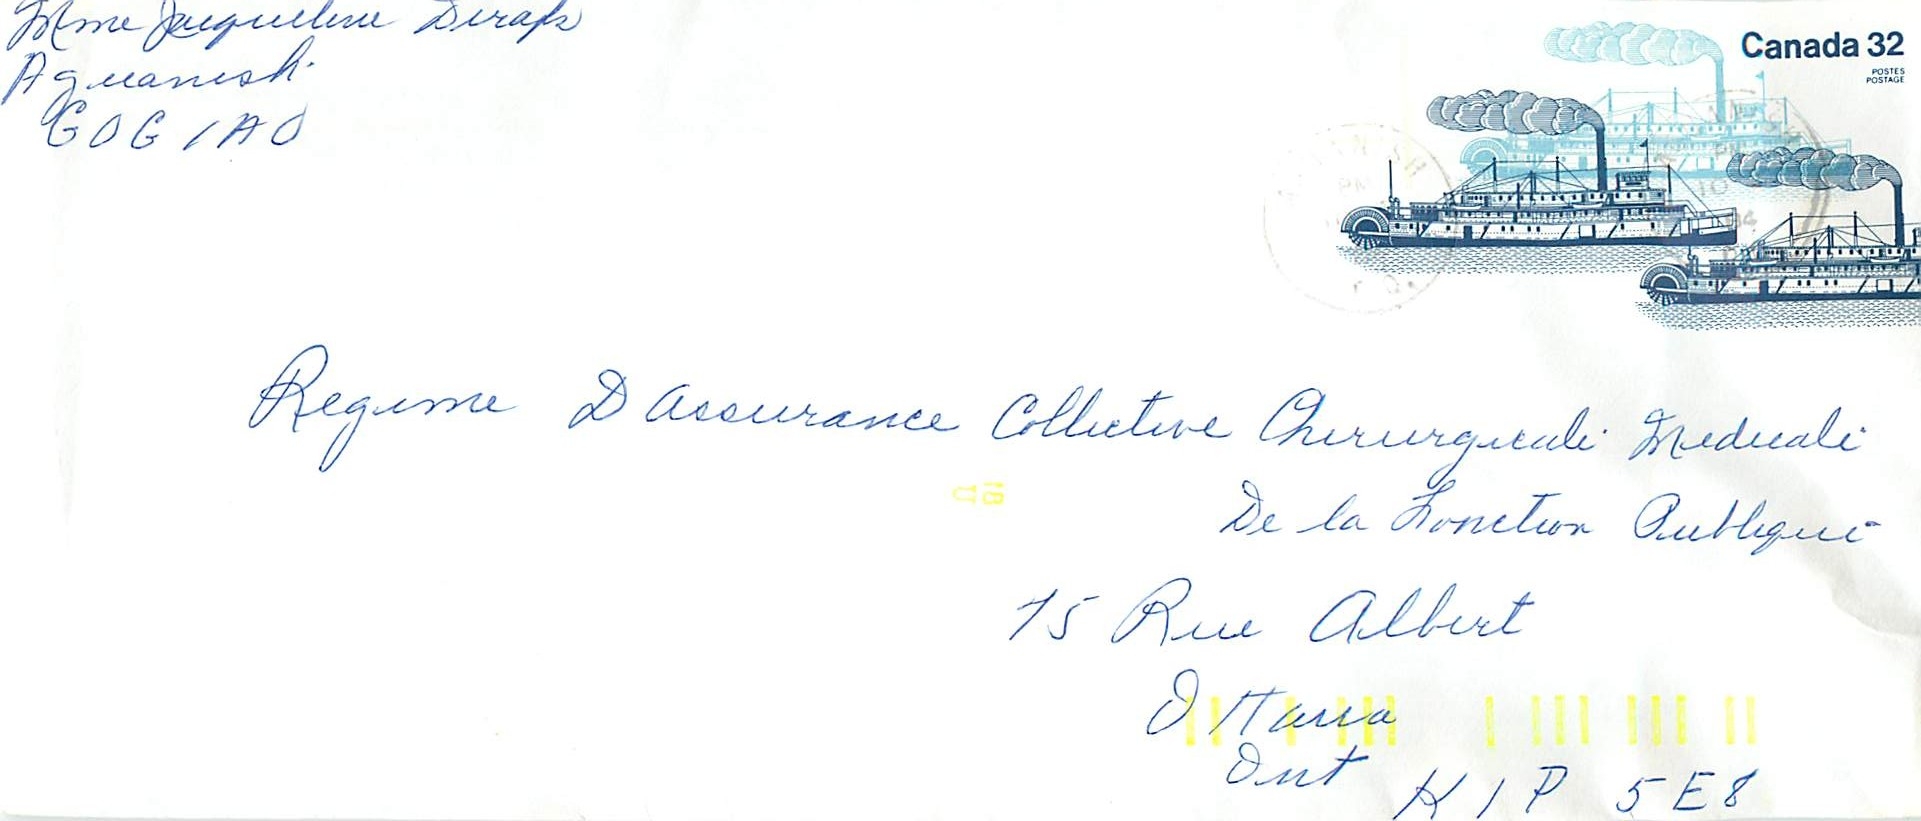 Mme Jacqueline Deraps
Aguanish
G0G 1A0
Canada 32
POSTES
POSTAGE
PM
PM
10
84
P.Q.
Regime D Assurance Collective Chirurgicale Medicale
De la Fonction Publique
75 Rue Albert
Ottawa
Ont K1P 5E8
181